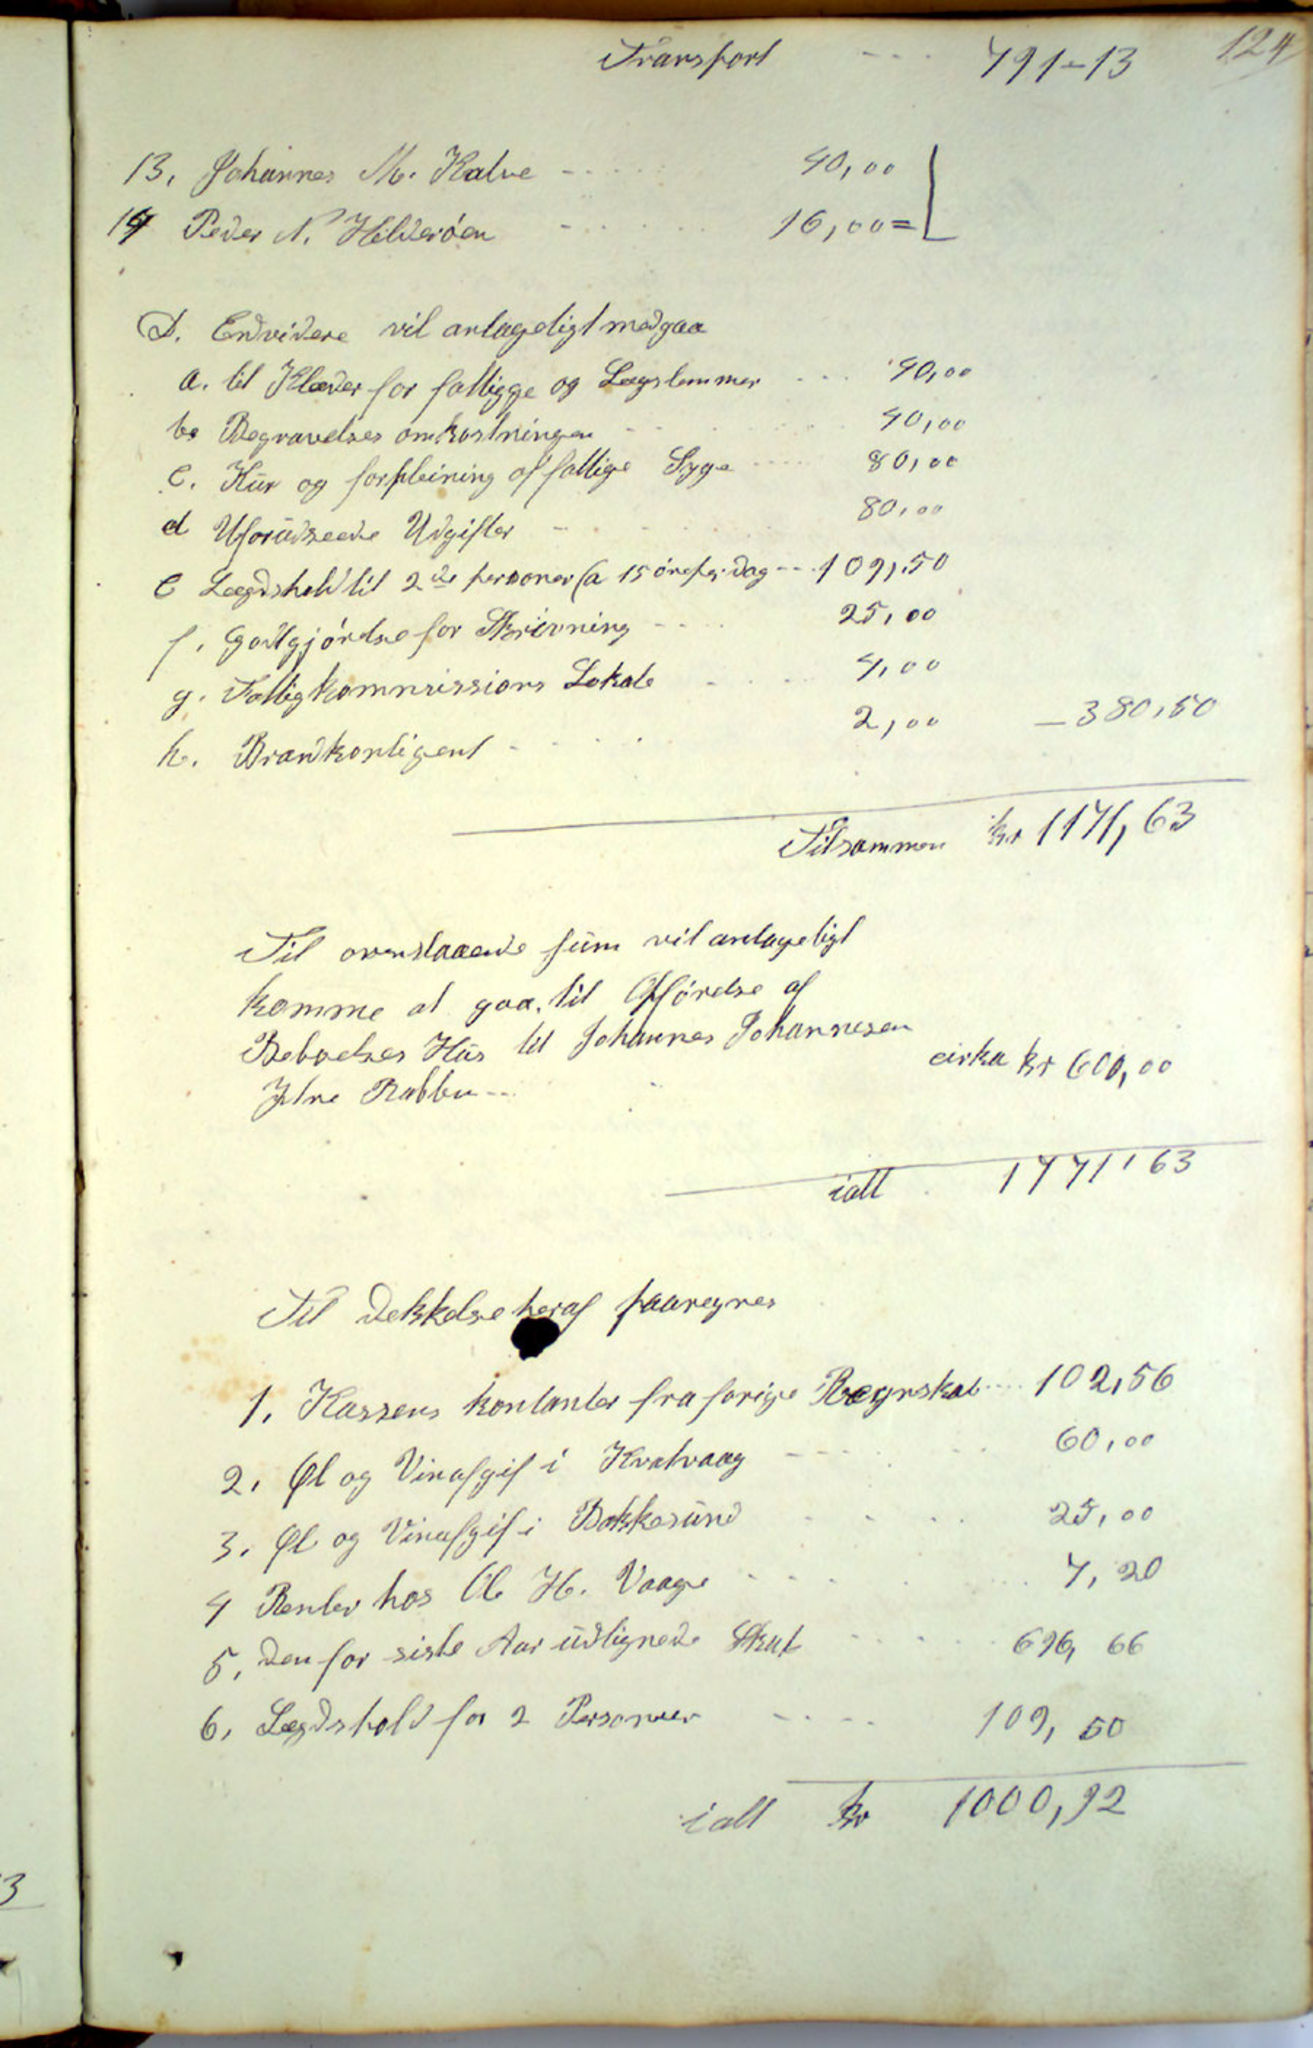 124
Transport --- 791-13
13, Johannes M. Kalve ----- 40,00
14 Peder N. Hilderöen ------ 16,00=
D. Endvidere vil antageligt medgaa
a. til Klæder for fattigge og Lægslemmer --- 40,00
b. Begravelses omkostningen ------ 40,00
c. Kur og forpleining af fattige Syge ---- 80,00
d Uforudseede Udgifter ------ 80,00
e Lægdshold til 2de personer (a 15 öre pr dag --- 109,50
f. Godtgjörelse for Skrivning ---- 25,00
g. Fattigkommissions Lokale ---- 4,00
h. Brandkontigent ----- 2,00 - 380,50
Tilsammen kr 1171,63
Til ovenstaaende sum vil antageligt
komme at gaa til Opförelse af
Beboelses Hus til Johannes Johannesen
Ytre Rabben -- cirka kr 600,00
ialt 1771,63
Til dekkelse heraf paaregnes
1, Kassens kontanter fra forige Regnskab --- 102,56
2, Øl og Vinafgif i Kvalvaag ----- 60,00
3, Øl og Vinafgif i Bekkesund ---- 25,00
4 Renter hos Ol H. Vaage ------ 7,20
5, den for siste Aar udlignede Skat ----- 696,66
6, Lægdshold for 2 Personer ---- 109,50
i alt kr 1000,92
3